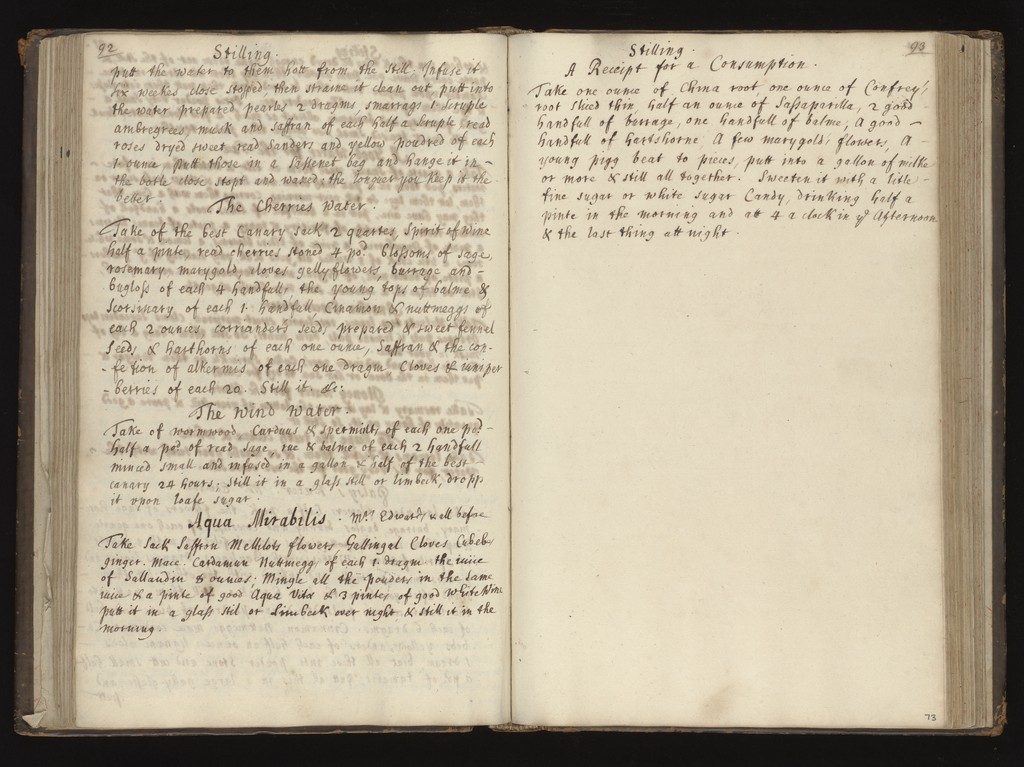 92
Stilling.
putt the water to them hott from the still Infuse it
six weekes close stoped, then straine it clean out putt into
the water prepared, pearles 2 dragms, smarrags 1 scruple
ambregreec, musk and saffran of each half a scruple read
roses dryed sweet read sanders and yellow poudred of each
1 ounce putt those in a sassenet beg and hange it in -
the botle close stopt and waxed: the longuer you keep it the
better.
The Cherries Water.
Take of the best Canary sack 2 quartes, Spirit of wine
half a pinte, read cherries stoned 4 pd. blossoms of sage,
rosemary, marygold, cloves gellyflowers, burrage and -
bugloss of each 4 handfull, the young tops of balme &
scorsinary of each 1 handfull, Cinamon & nuttmeggs of
each 2 ounces, corrianders seeds prepared & sweet fennel
seeds & harthorns of each one ounce, Saffran & the con-
- fetion of alkermis of each one dragm Cloves & iuniper
- berries of each 20. Still it. &c:
The Wind Water.
Take of wormwood, Carduus & spermints of each one pd
half a pd of read sage, rue & balme of each 2 handfull
minced small and infused in a gallon & half of the best
canary 24 hours: Still it in a glass still or limbeck, dropp
it upon loafe sugar.
Aqua Mirabilis. Mrs Edwards well before
Take Sack Saffron Mellilots flowers, Gallingal Cloves Cubebs
ginger. Mace. Cardamun Nuttmegg of each 1 dragm the iuice
of Sallandin 8 ounces; Mingle all the pouders in the same
iuice & a pinte of good Aqua Vitæ & 3 pintes of good White Wine
putt it in a glass stil or Limbeck over night & still it in the
morning.
93
Stilling.
A Receipt for a Consumption.
Take one ounce of China root, one ounce of Confrey
root sliced thin half an ounce of Sassaparilla, 2 good
handfull of burrage, one handfull of balme, A good -
handfull of hartshorne, A few marygold flowers, A
young pigg beat to pieces, putt into a gallon of milke
or more & still all together. Sweeten it with a little
fine sugar or white sugar Candy, drinking half a
pinte in the morning and att 4 a clock in ye Afternoon
& the last thing att night.
73